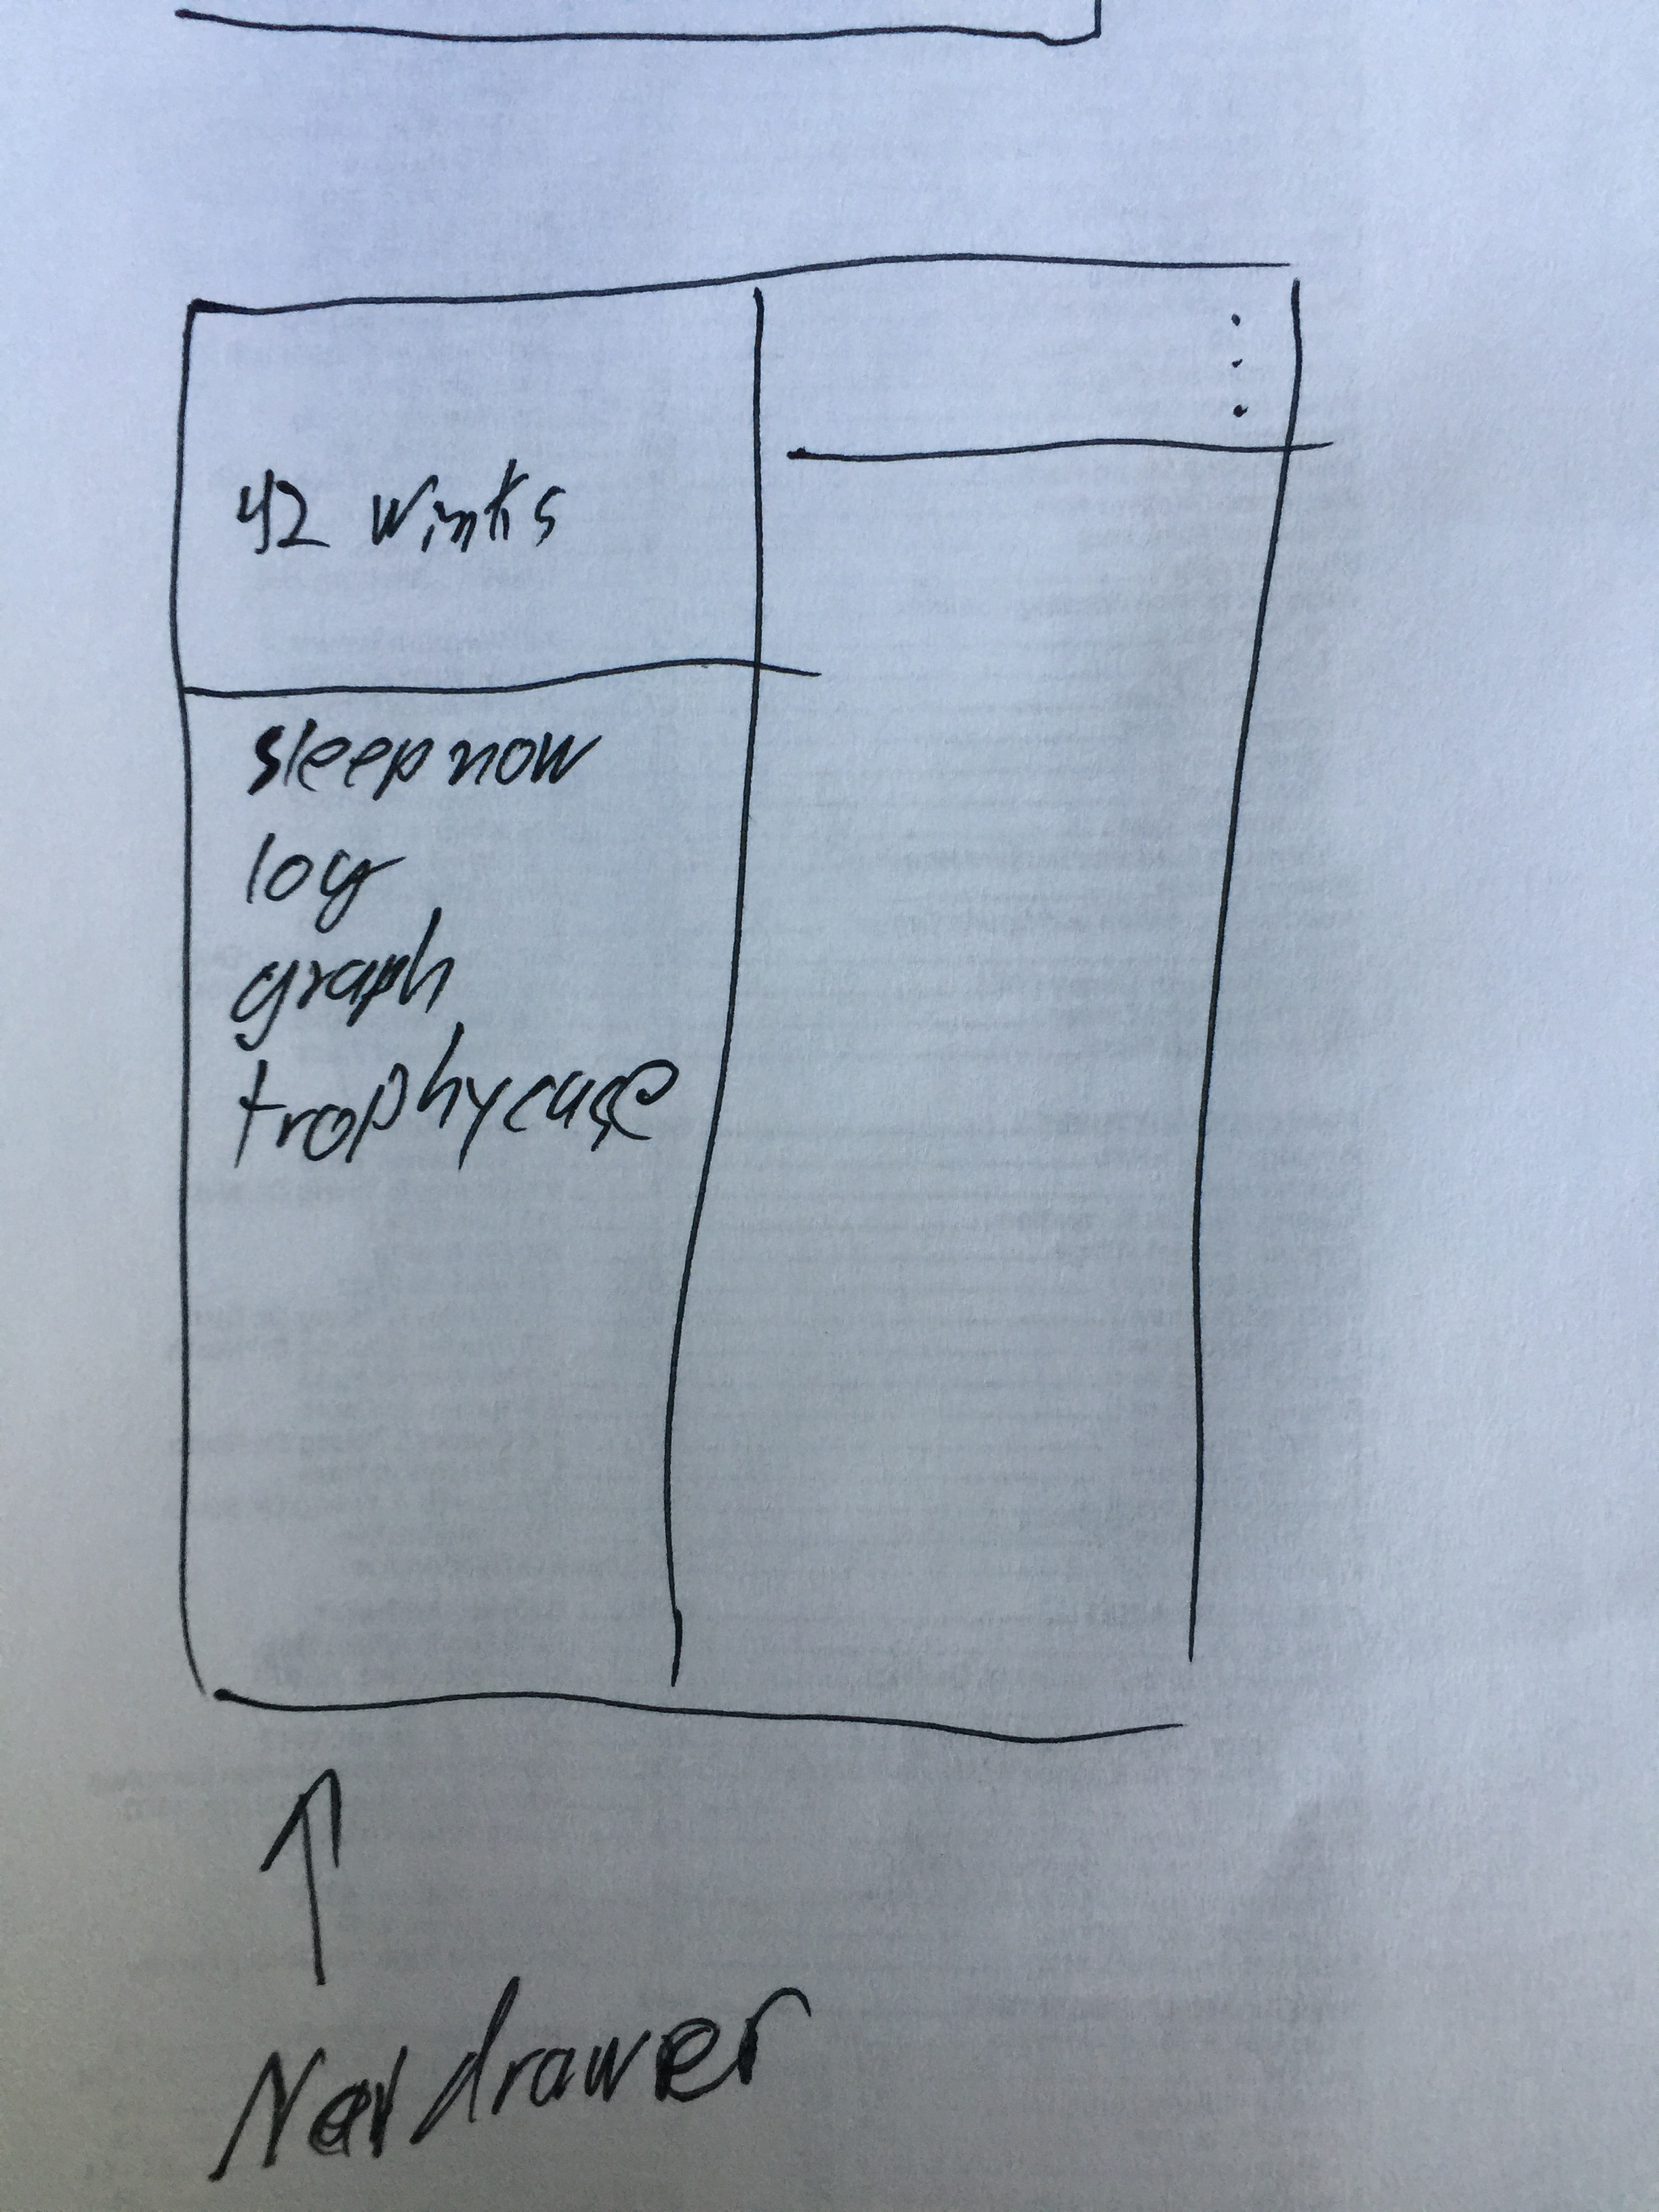 42 winks
sleep now
log
graph
trophy case
Nav drawer